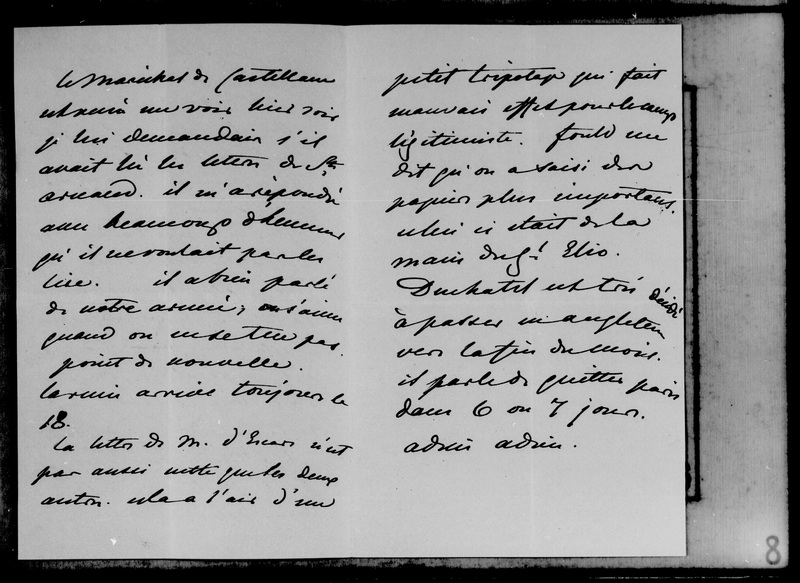 le Maréchal de Castellane
est venu me voir hier soir
je lui demandais s'il
avait lu les lettres de St
arnaud. il m'a répondu
avec beaucoup d'humeur
qu'il ne voulait pas les
lire. il a bien parlé
de notre armée, on s'aime
quand on ne se tue pas.
point de nouvelle.
la reine arrive toujours le
18.
La lettre de M. d'Escars n'est
pas aussi nette que les deux
autres. cela a l'air d'un
petit tripotage qui fait
mauvais effet pour le camp
légitimiste. fould me
dit qu'on a saisi des
papiers plus importans.
celui ci était de la
main du Gl Elio.
Duchatel est très décidé
à passer en angleterre
vers la fin du mois.
il parle de quitter paris
dans 6 ou 7 jours.
adieu adieu.
8